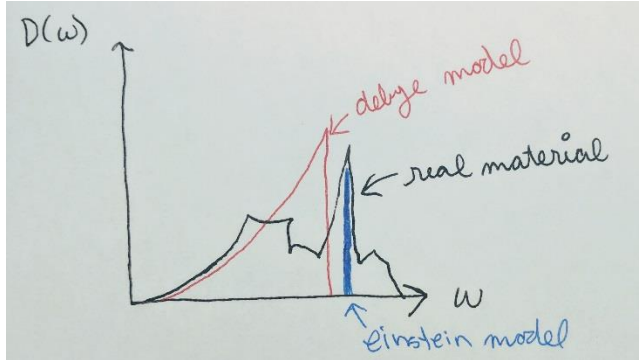 D(ω)
debye model
real material
ω
einstein model